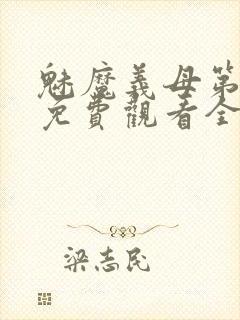 魅魔義母第
免費觀看全
梁志民